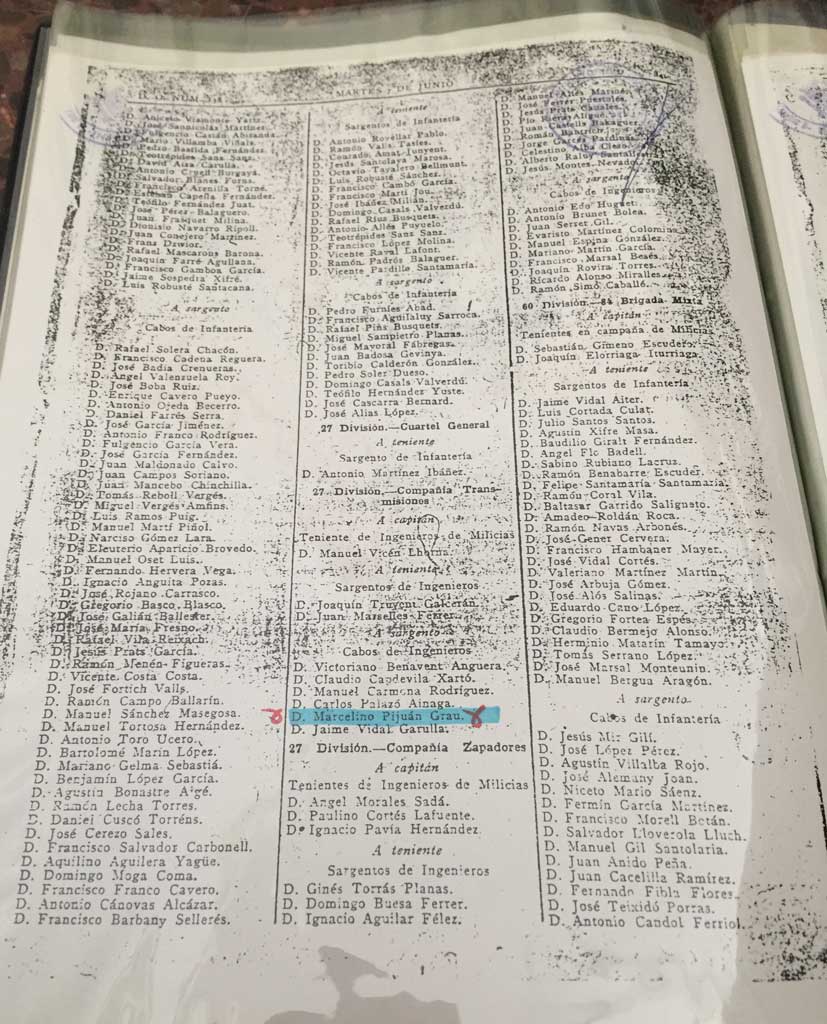 D. O. NÚM.
MARTES 7 DE JUNIO
D. Aniceto Viamonte Yarte.
D. José Sannicolás Martínez.
D. Fulgencio Castán Abizanda.
D. Mario Villamba Viñals.
D. Pedro Bastida Fernández.
D. Teotrépides Sans Sanz.
D. Juan Aisa Carulla.
D. Antonio Burgayá.
D. Salvador Blanes Forns.
D. Francisco Arenilla Torné.
D. Esteban Capella Fernández.
D. Teófilo Fernández Juat.
D. José Pérez Balaguer.
D. Juan Frasquet Milina.
D. Dionisio Navarro Ripoll.
D. Juan Conejero Martínez.
D. Franz Drwior.
D. Rafael Mascarons Barona.
D. Joaquín Farré Agullana.
D. Francisco Gamboa García.
D. Jaime Sospedra Xifré.
D. Luis Robusté Santacana.
A sargento
Cabos de Infantería
D. Rafael Solera Chacón.
D. Francisco Cadena Reguera.
D. José Badía Crenueras.
D. Angel Valenzuela Roy.
D. José Boba Ruiz.
D. Enrique Cavero Pueyo.
D. Antonio Ojeda Becerro.
D. Daniel Farrés Serra.
D. José García Jiménez.
D. Antonio Franco Rodríguez.
D. Fulgencio García Vera.
D. José García Fernández.
D. Juan Maldonado Calvo.
D. Juan Campos Soriano.
D. Juan Mancebo Chinchilla.
D. Tomás Reboll Vergés.
D. Miguel Vergés Amfins.
D. Luis Ramos Puig.
D. Manuel Martí Piñol.
D. Narciso Gómez Lara.
D. Eleuterio Aparicio Brovedo.
D. Manuel Oset Luis.
D. Fernando Hervera Vega.
D. Ignacio Anguita Pozas.
D. José Rojano Carrasco.
D. Gregorio Basco Blasco.
D. José Galián Ballester.
D. José María Fresno.
D. Rafael Vila Reixach.
D. Jesús Prats García.
D. Ramón Menén Figueras.
D. Vicente Costa Costa.
D. José Fortich Valls.
D. Ramón Campo Ballarín.
D. Manuel Sánchez Masegosa.
D. Manuel Tortosa Hernández.
D. Antonio Toro Ucero.
D. Bartolomé Marín López.
D. Mariano Gelma Sebastiá.
D. Benjamín López García.
D. Agustín Bonastre Aigé.
D. Ramón Lecha Torres.
D. Daniel Cuscó Torréns.
D. José Cerezo Sales.
D. Francisco Salvador Carbonell.
D. Aquilino Aguilera Yagüe.
D. Domingo Moga Coma.
D. Francisco Franco Cavero.
D. Antonio Cánovas Alcázar.
D. Francisco Barbany Sellerés.
A teniente
Sargentos de Infantería
D. Antonio Rovellar Pablo.
D. Ramón Valls Tasies.
D. Conrado Amat Junyent.
D. Jesús Santolaya Marosa.
D. Octavio Tavalero Bellmunt.
D. Luis Robusté Sánchez.
D. Francisco Cambó García.
D. Francisco Martí Jou.
D. José Ibáñez Milián.
D. Domingo Casals Valverdú.
D. Rafael Rius Busquets.
D. Antonio Allés Puyuelo.
D. Teotrépides Sanz Sanz.
D. Francisco López Molina.
D. Vicente Raval Lafont.
D. Ramón Padrós Balaguer.
D. Vicente Pardillo Santamaría.
A sargento
Cabos de Infantería
D. Pedro Furnies Abad.
D. Francisco Aguilaluy Sarroca.
D. Rafael Piñs Busquets.
D. Miguel Sampietro Planas.
D. José Mayoral Fábregas.
D. Juan Badosa Gevinya.
D. Toribio Calderón González.
D. Pedro Soler Dueso.
D. Domingo Casals Valverdú.
D. Teófilo Hernández Yuste.
D. José Cascarra Bernard.
D. José Alias López.
27 División.—Cuartel General
A teniente
Sargento de Infantería
D. Antonio Martínez Ibáñez.
27 División.—Compañía Trans-
misiones
A capitán
Teniente de Ingenieros de Milicias
D. Manuel Vicén
A teniente
Sargentos de Ingenieros
D. Joaquín Truyent Galcerán.
D. Juan Marselles Ferrer.
A sargento
Cabos de Ingenieros
D. Victoriano Benavent Anguera.
D. Claudio Capdevila Xartó.
D. Manuel Carmona Rodríguez.
D. Carlos Palazó Ainaga.
D. Marcelino Pijuán Grau.
D. Jaime Vidal Garulla.
27 División.—Compañía Zapadores
A capitán
Tenientes de Ingenieros de Milicias
D. Angel Morales Sadá.
D. Paulino Cortés Lafuente.
D. Ignacio Pavía Hernández.
A teniente
Sargentos de Ingenieros
D. Ginés Torrás Planas.
D. Domingo Buesa Ferrer.
D. Ignacio Aguilar Félez.
D. Manuel Allés Mariné.
D. José Ferrer Puestoles.
D. Jesús Prats Canales.
D. Pío Rieras Aligué.
D. Juan Castells Bakaguer.
D. Román Bantrich.
D. Jorge Garcés Pardina.
D. Celestino Alba Cleso.
D. Alberto Raluy
D. Jesús Montes Nevado.
A sargento
Cabos de Ingenieros
D. Antonio Edo Huguet.
D. Antonio Brunet Bolea.
D. Juan Serret Gil.
D. Evaristo Martínez Colomina
D. Manuel Espina González.
D. Mariano Martín García.
D. Francisco Marsal Besés.
D. Joaquín Rovira Torres.
D. Ricardo Alonso Miralles.
D. Ramón Simó Caballé.
60 División.—84 Brigada Mixta
A capitán
Tenientes en campaña de Milicias
D. Sebastián Gimeno Escudero.
D. Joaquín Elorriaga Iturriaga.
A teniente
Sargentos de Infantería
D. Jaime Vidal Aiter.
D. Luis Cortada Culat.
D. Julio Santos Santos.
D. Agustín Xifre Masa.
D. Baudilio Giralt Fernández.
D. Angel Flo Badell.
D. Sabino Rubiano Lacruz.
D. Ramón Benabarre Escuder.
D. Felipe Santamaría Santamaría.
D. Ramón Coral Vila.
D. Baltasar Garrido Saligneto.
D. Amadeo Roldán Roca.
D. Ramón Navas Arbonés.
D. José Gener Cervera.
D. Francisco Hambaner Mayer.
D. José Vidal Cortés.
D. Valeriano Martínez Martín.
D. José Arbuja Gómez.
D. José Alós Salinas.
D. Eduardo Cano López.
D. Gregorio Fortea Espés.
D. Claudio Bermejo Alonso.
D. Herminio Matarín Tamayo.
D. Tomás Serrano López.
D. José Marsal Monteunin.
D. Manuel Bergua Aragón.
A sargento
Cabos de Infantería
D. Jesús Mir Gili.
D. José López Pérez.
D. Agustín Villalba Rojo.
D. José Alemany Joan.
D. Niceto Mario Sáenz.
D. Fermín García Martínez.
D. Francisco Morell Betán.
D. Salvador Lloverola Lluch.
D. Manuel Gil Santolaria.
D. Juan Anido Peña.
D. Juan Cacelilla Ramírez.
D. Fernando Fibla Flores.
D. José Teixidó Porras.
D. Antonio Candol Ferriol.